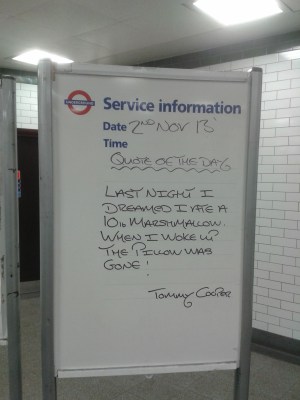 Service information
Date 2ND NOV 13'
Time
QUOTE OF THE DAY
LAST NIGHT I
DREAMED I ATE A
10lb MARSHMALLOW.
WHEN I WOKE UP
THE PILLOW WAS
GONE!
TOMMY COOPER